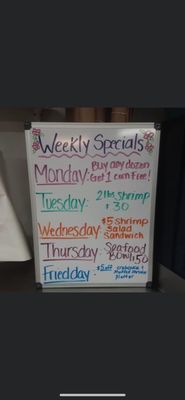 Weekly Specials
Monday: Buy any dozen
Get 1 corn Free!
Tuesday: 2 lbs shrimp
$30
Wednesday: $5 shrimp
Salad
Sandwich
Thursday: Seafood
Bowl $50
Friedday: $5 off
Platter